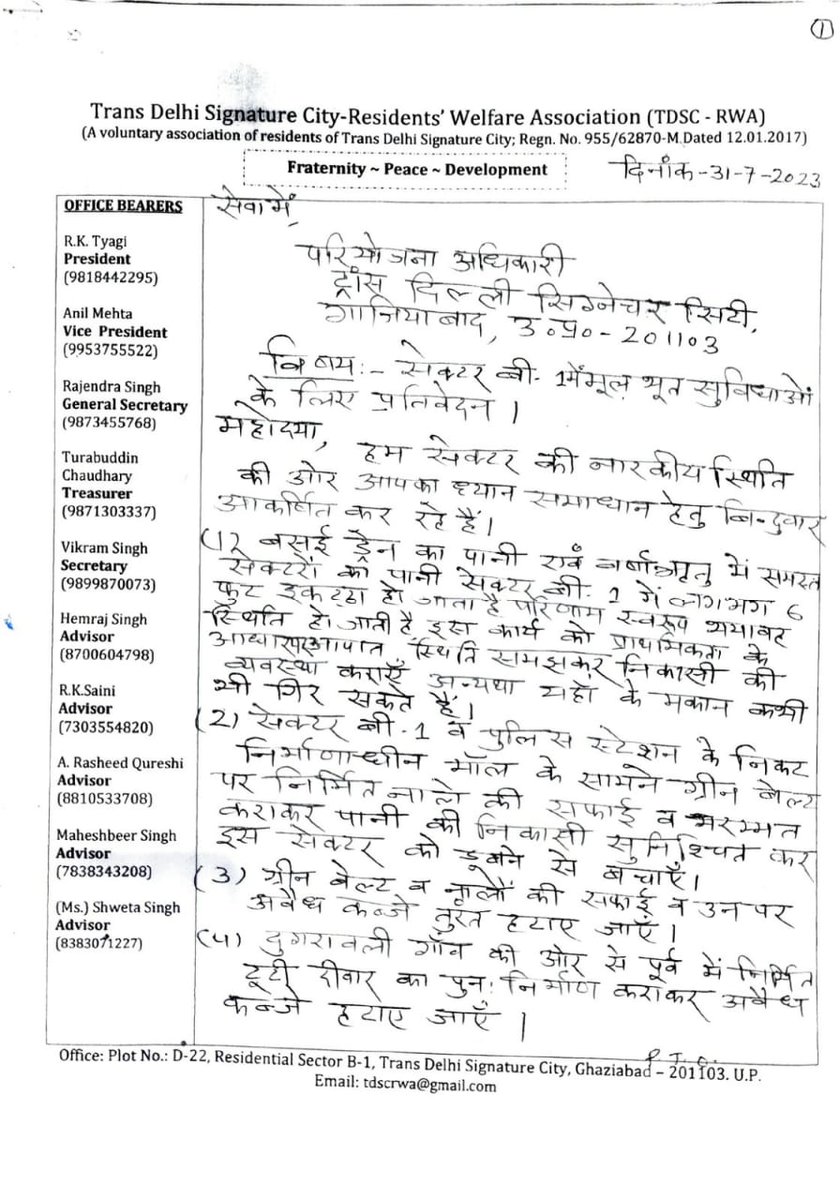 1
Trans Delhi Signature City-Residents' Welfare Association (TDSC - RWA)
(A voluntary association of residents of Trans Delhi Signature City; Regn. No. 955/62870-M Dated 12.01.2017)
Fraternity ~ Peace ~ Development
दिनांक-31-7-2023
OFFICE BEARERS
R.K. Tyagi
President
(9818442295)
Anil Mehta
Vice President
(9953755522)
Rajendra Singh
General Secretary
(9873455768)
Turabuddin
Chaudhary
Treasurer
(9871303337)
Vikram Singh
Secretary
(9899870073)
Hemraj Singh
Advisor
(8700604798)
R.K.Saini
Advisor
(7303554820)
A. Rasheed Qureshi
Advisor
(8810533708)
Maheshbeer Singh
Advisor
(7838343208)
(Ms.) Shweta Singh
Advisor
(8383071227)
सेवा में,
परियोजना अधिकारी
ट्रांस दिल्ली सिग्नेचर सिटी,
गाजियाबाद, उ०प्र०-201103
विषय:- सेक्टर बी-1 में मूल भूत सुविधाओं
के लिए प्रतिवेदन।
महोदया,
हम सेक्टर की नारकीय स्थिति
की ओर आपका ध्यान समाधान हेतु बिन्दुवार
आकर्षित कर रहे हैं।
(1) बसई ड्रैन का पानी एवं वर्षाऋतु में समस्त
सेक्टरों का पानी सेक्टर बी.1 में लगभग 6
फुट इकट्टा हो जाता है परिणाम स्वरूप भयावह
स्थिति हो जाती है इस कार्य को प्राथमिकता के
आधारपर आपात स्थिति समझकर निकासी की
व्यवस्था कराएँ अन्यथा यहाँ के मकान कभी
भी गिर सकते हैं।
(2) सेक्टर बी.1 व पुलिस स्टेशन के निकट
निर्माणाधीन मॉल के सामने ग्रीन बेल्ट
पर निर्मित नाले की सफाई व मरम्मत
कराकर पानी की निकासी सुनिश्चित कर
इस सेक्टर को डूबने से बचाएँ।
(3) ग्रीन बेल्ट व नालों की सफाई व उन पर
अवैध कब्जे तुरंत हटाए जाएँ।
(4) दुगरावली गाँव की ओर से पूर्व में निर्मित
टूटी दीवार का पुन: निर्माण कराकर अवैध
कब्जे हटाए जाएँ।
Office: Plot No.: D-22, Residential Sector B-1, Trans Delhi Signature City, Ghaziabad – 201103. U.P.
Email: tdscrwa@gmail.com